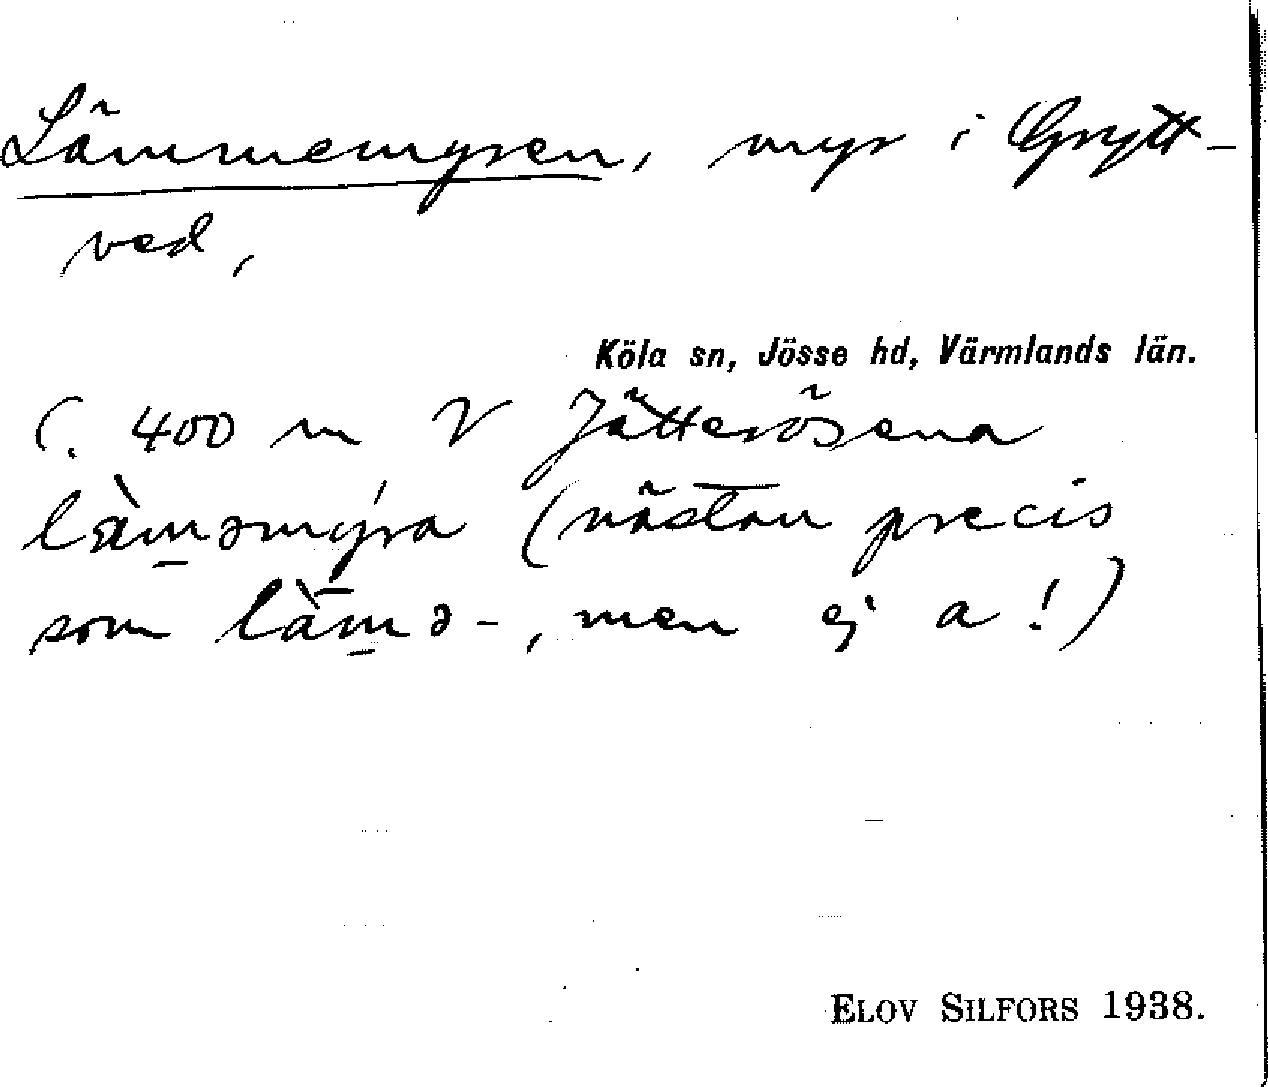 Lämmemyren, myr i Grytt-
ved,
Köla sn, Jösse hd, Värmlands län.
C. 400 m V Jätterösena
lam̱əmýra (nästan precis
som làm̱ə-, men ej a!)
ELOV SILFORS 1938.